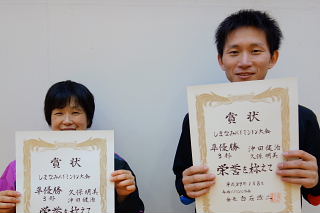 賞状
しまなみバドミントン大会
準優勝 久保明美
3部 沖田健治
栄誉を称えて
賞状
しまなみバドミントン大会
準優勝 沖田健治
3部 久保明美
栄誉を称えて